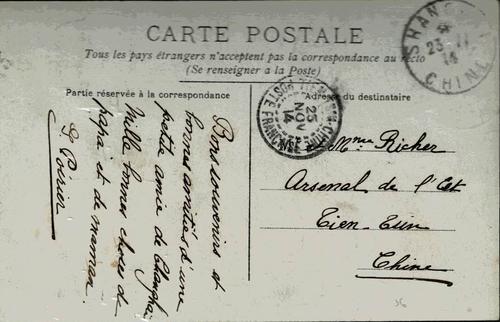 CARTE POSTALE
Tous les pays étrangers n'acceptent pas la correspondance au recto
(Se renseigner à la Poste)
Partie réservée à la correspondance
Adresse du destinataire
Bons souvenirs et
bonnes amitiés d'une
petite amie de
Mille bonnes choses de
papa et de maman.
Poirier
Mme Richer
Arsenal de l'Est
Tien-Tsin
Chine
SHANG
23-11
14
CHINE
POSTE FRANÇAISE CHINE
25
NOV
14
36